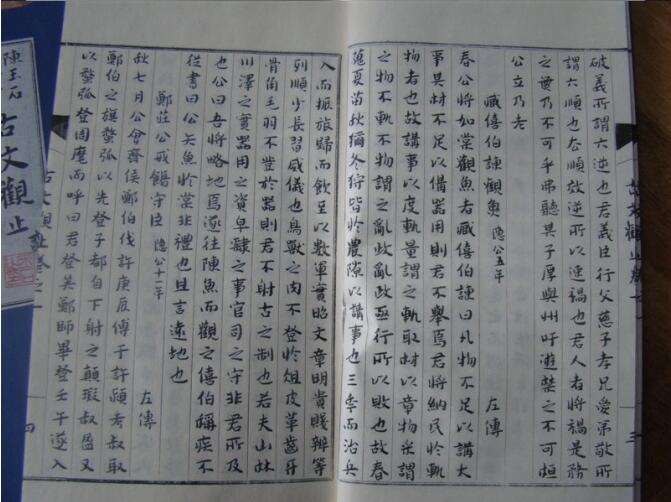 三
破義所謂六逆也君義臣行父慈子孝兄愛弟敬所
謂六順也去順效逆所以速禍也君人者將禍是務
之乃不可乎弗聽其子厚與州吁遊禁之不可桓
公立乃老
臧僖伯諫觀魚 隱公五年 左傳
春公將如棠觀魚者臧僖伯諫曰凡物不足以講大
事其材不足以備器用則君不舉焉君將納民於軌
物者也故講事以度軌量謂之軌取材以章物采謂
之物不軌不物謂之亂政亂政亟行所以敗也故春
蒐夏苗秋獮冬狩皆於農隙以講事也三年而治兵
入而振旅歸而飲至以數軍實昭文章明貴賤辨等
列順少長習威儀也鳥獸之肉不登於俎皮革齒牙
骨角毛羽不登於器則君不射古之制也若夫山林
川澤之實器用之資皁隸之事官司之守非君所及
也公曰吾將略地焉遂往陳魚而觀之僖伯稱疾不
從書曰公矢魚於棠非禮也且言遠地也
鄭莊公戒飭守臣 隱公十一年 左傳
秋七月公會齊侯鄭伯伐許庚辰傅于許潁考叔取
鄭伯之旗蝥弧以先登子都自下射之顛瑕叔盈又
以蝥弧登周麾而呼曰君登矣鄭師畢登壬午遂入
古文觀止卷之一 四
陳玉石 古文觀止